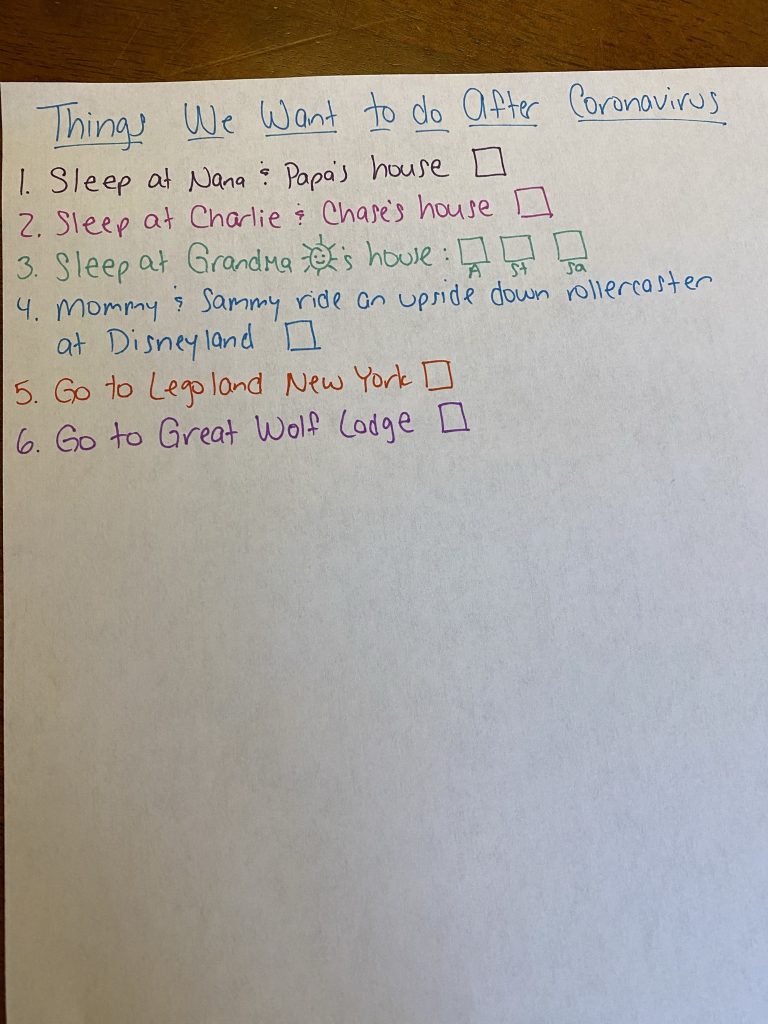 Things We Want to do After Coronavirus
1. Sleep at Nana & Papa's house
2. Sleep at Charlie & Chase's house
3. Sleep at Grandma 's house:
A St Sa
4. Mommy & Sammy ride an upside down rollercaster
at Disneyland
5. Go to Legoland New York
6. Go to Great Wolf Lodge